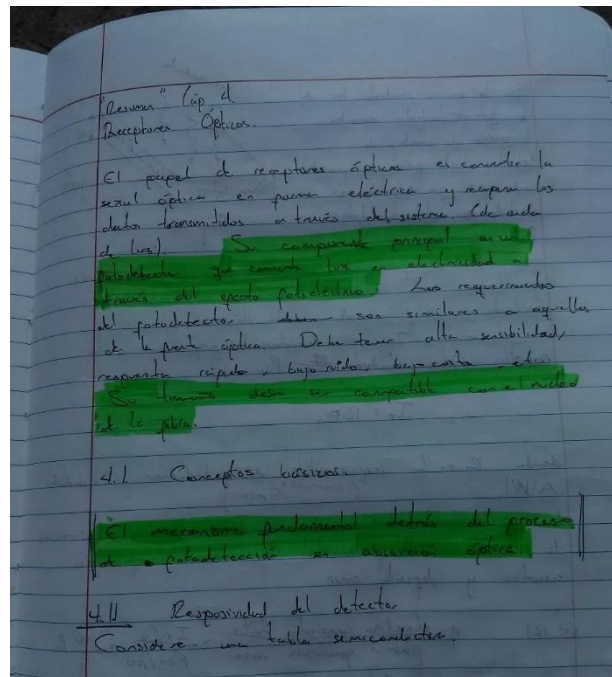 "Resumen" Cap 4
Receptores Ópticos.
El papel de receptores ópticos es convertir la
señal óptica en forma eléctrica y recuperar los
datos transmitidos a través del sistema. (de onda
de luz) Su componente principal es un
fotodetector que convierte luz en electricidad a
través del efecto fotoeléctrico. Los requerimientos
del fotodetector son similares a aquellos
de la fuente óptica. Debe tener alta sensibilidad,
respuesta rápida, bajo ruido, bajo costo etc.
Su tamaño debe ser compatible con el núcleo
de la fibra.
4.1 Conceptos básicos.
El mecanismo fundamental detrás del proceso
de fotodetección es absorción óptica.
4.1.1 Resposividad del detector
Considere una tabla semiconductora.